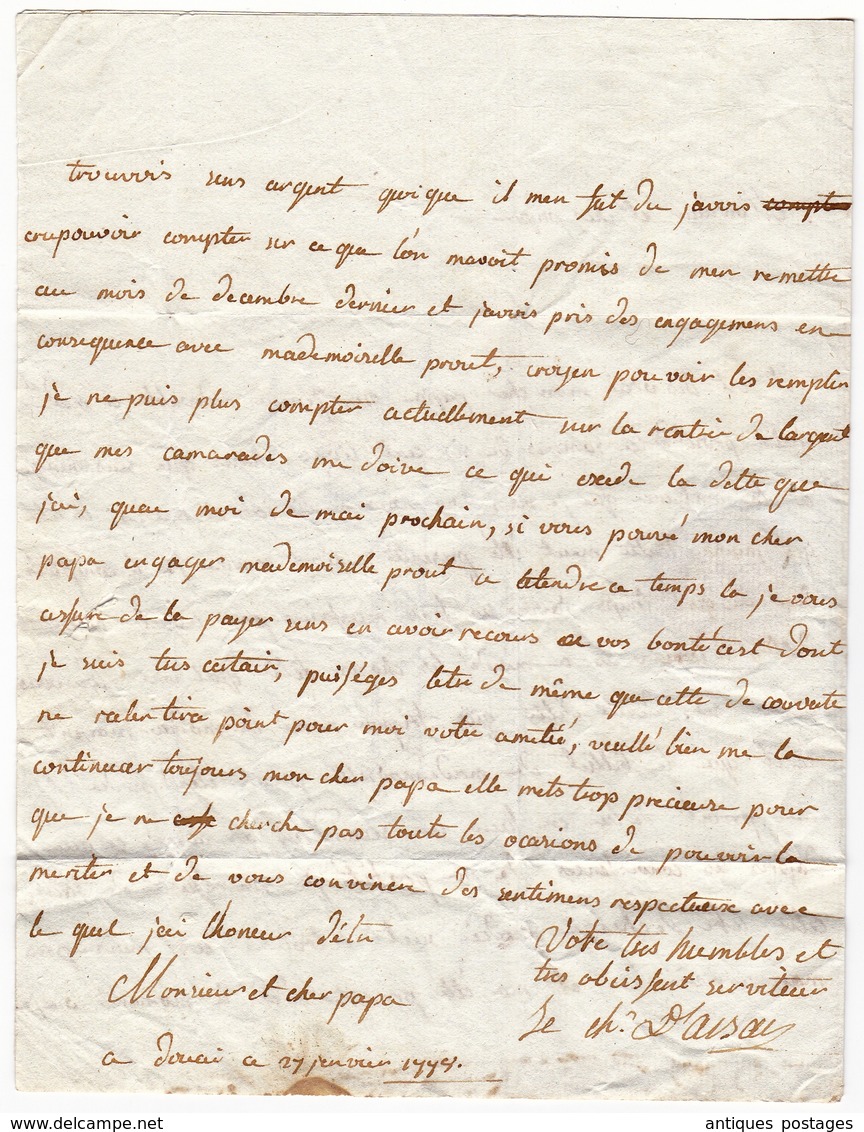 trouvois sens argent quoique il men fut du javois compte
cru pouvoir compter sur ce que l'on mavoit promis de men remettre
au mois de decembre dernier et javois pris des engagemens en
consequence avec mademoiselle prout, croyen pouvoir les remplir
je ne puis plus compter actuellement sur la rentrée de largent
que mes camarades me doive ce qui exede la dette que
jai, quau moi de mai prochain, si vous pouvé mon cher
papa engager mademoiselle prout a attendre ce temps la je vous
assure de la payer sens en avoir recours a vos bonté cest dont
je suis tres certain, puisséges letre de même que cette de couverte
ne ralentira point pour moi votre amitié, veuillé bien me la
continuer toujours mon cher papa elle mets trop precieuse pour
que je ne cherche pas toute les ocasions de pouvoir la
meriter et de vous convincre des sentimens respectueux avec
le quel jai l'honeur détre
Votre tres humbles et
tres obeissent serviteur
Monsieur et cher papa
Le ch.r
a douai ce 27 jenvier
antiques postages